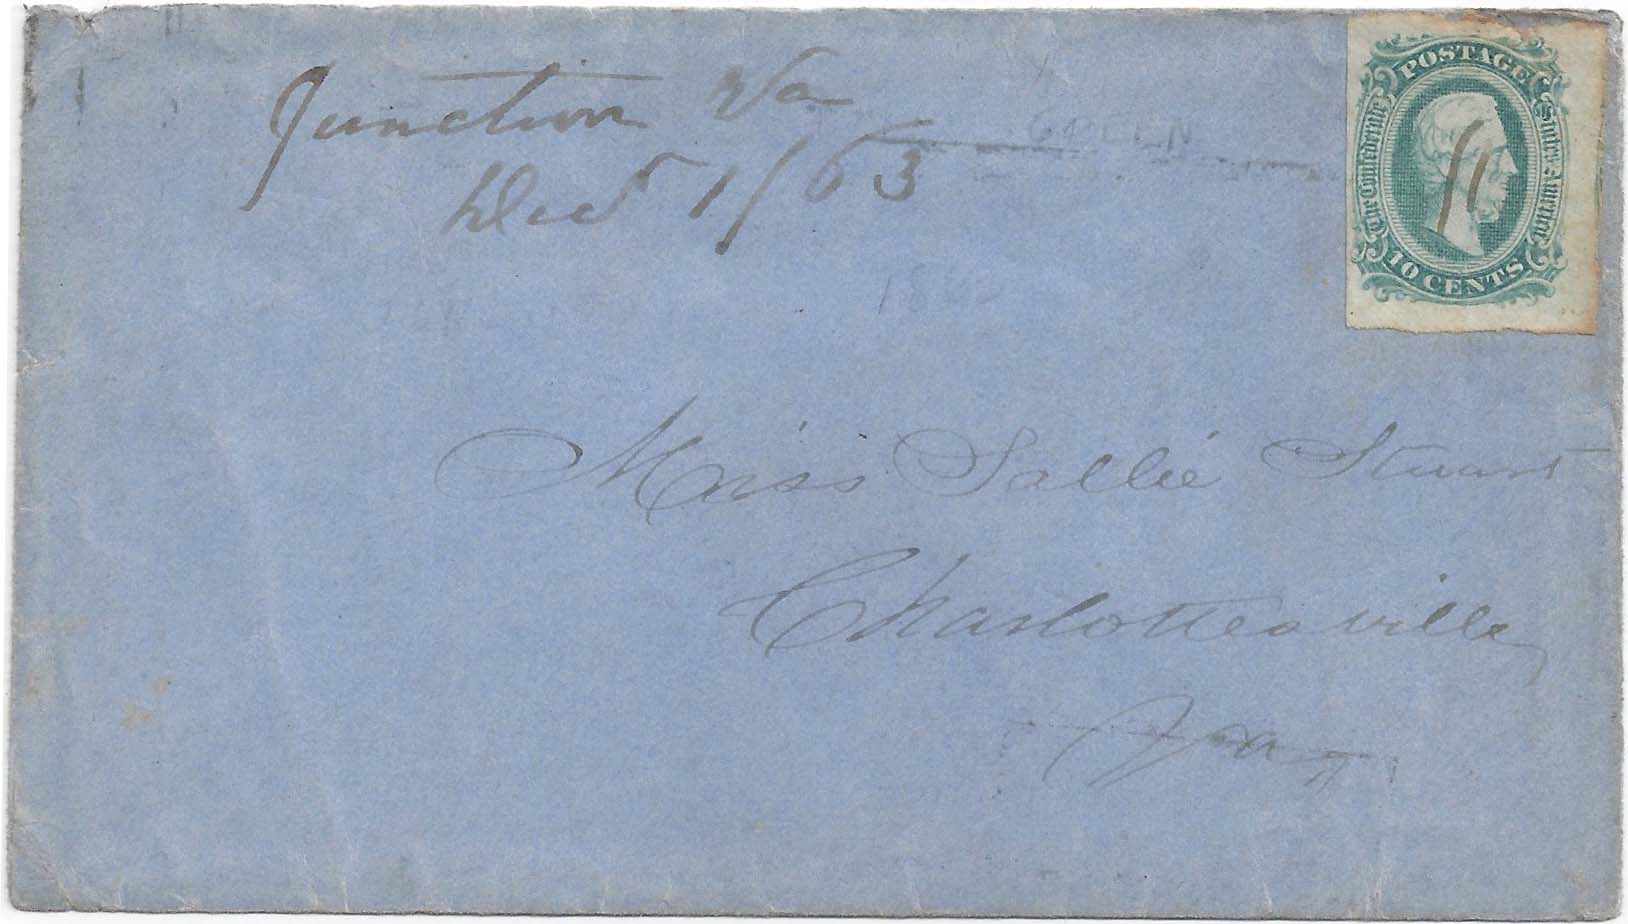 Junction Va
Dec 1/63
GREEN
POSTAGE
The Confederate States of America
10 CENTS
Miss Sallie Stuart
Charlottesville
Va